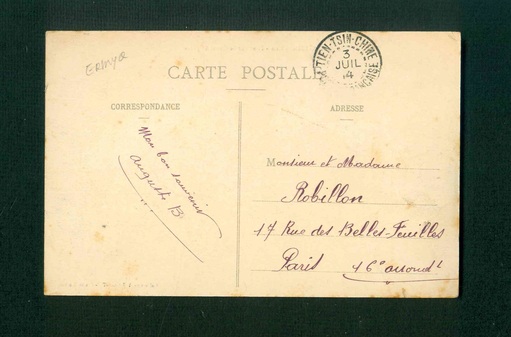 CARTE POSTALE
TIEN-TSIN-CHINE
3
JUIL
14
FRANÇAISE
CORRESPONDANCE
ADRESSE
Mon bon souvenir
Auguste B
Monsieur et Madame
Robillon
17 Rue des Belles-Feuilles
Paris 16e arrondt